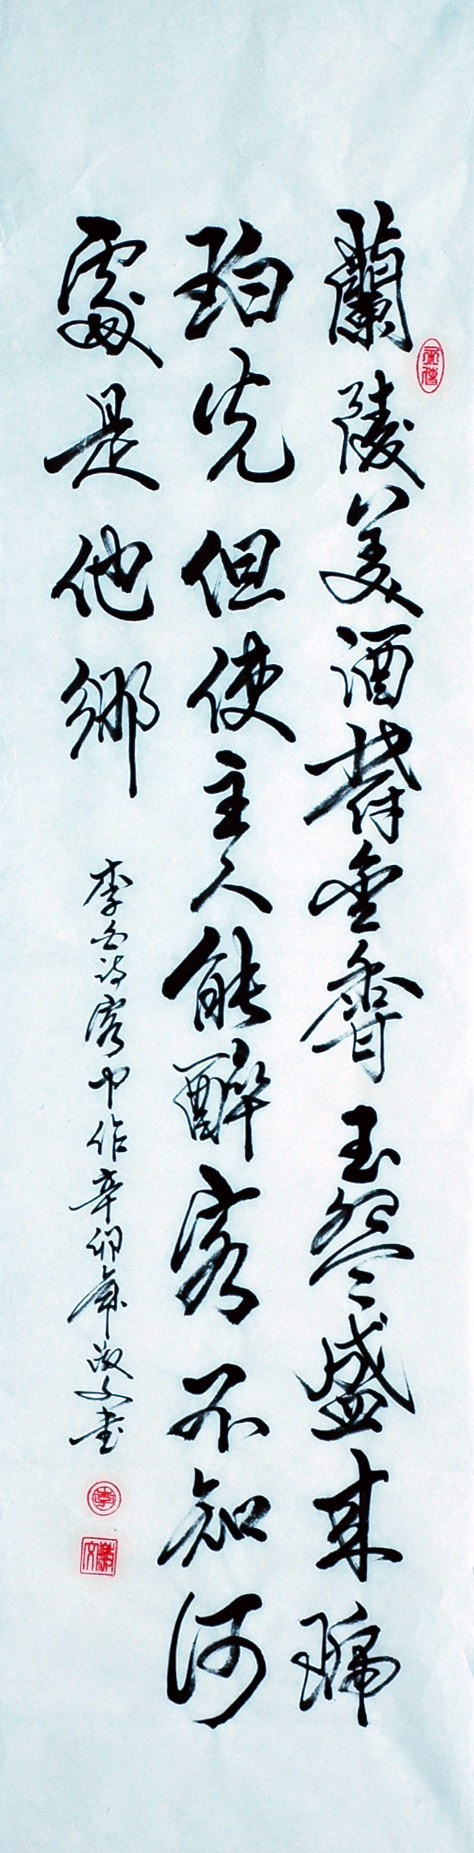 蘭陵美酒鬱金香玉盌盛来琥
珀光但使主人能醉客不知何
處是他鄉
李白詩客中作辛卯年淑文書
李
淑文